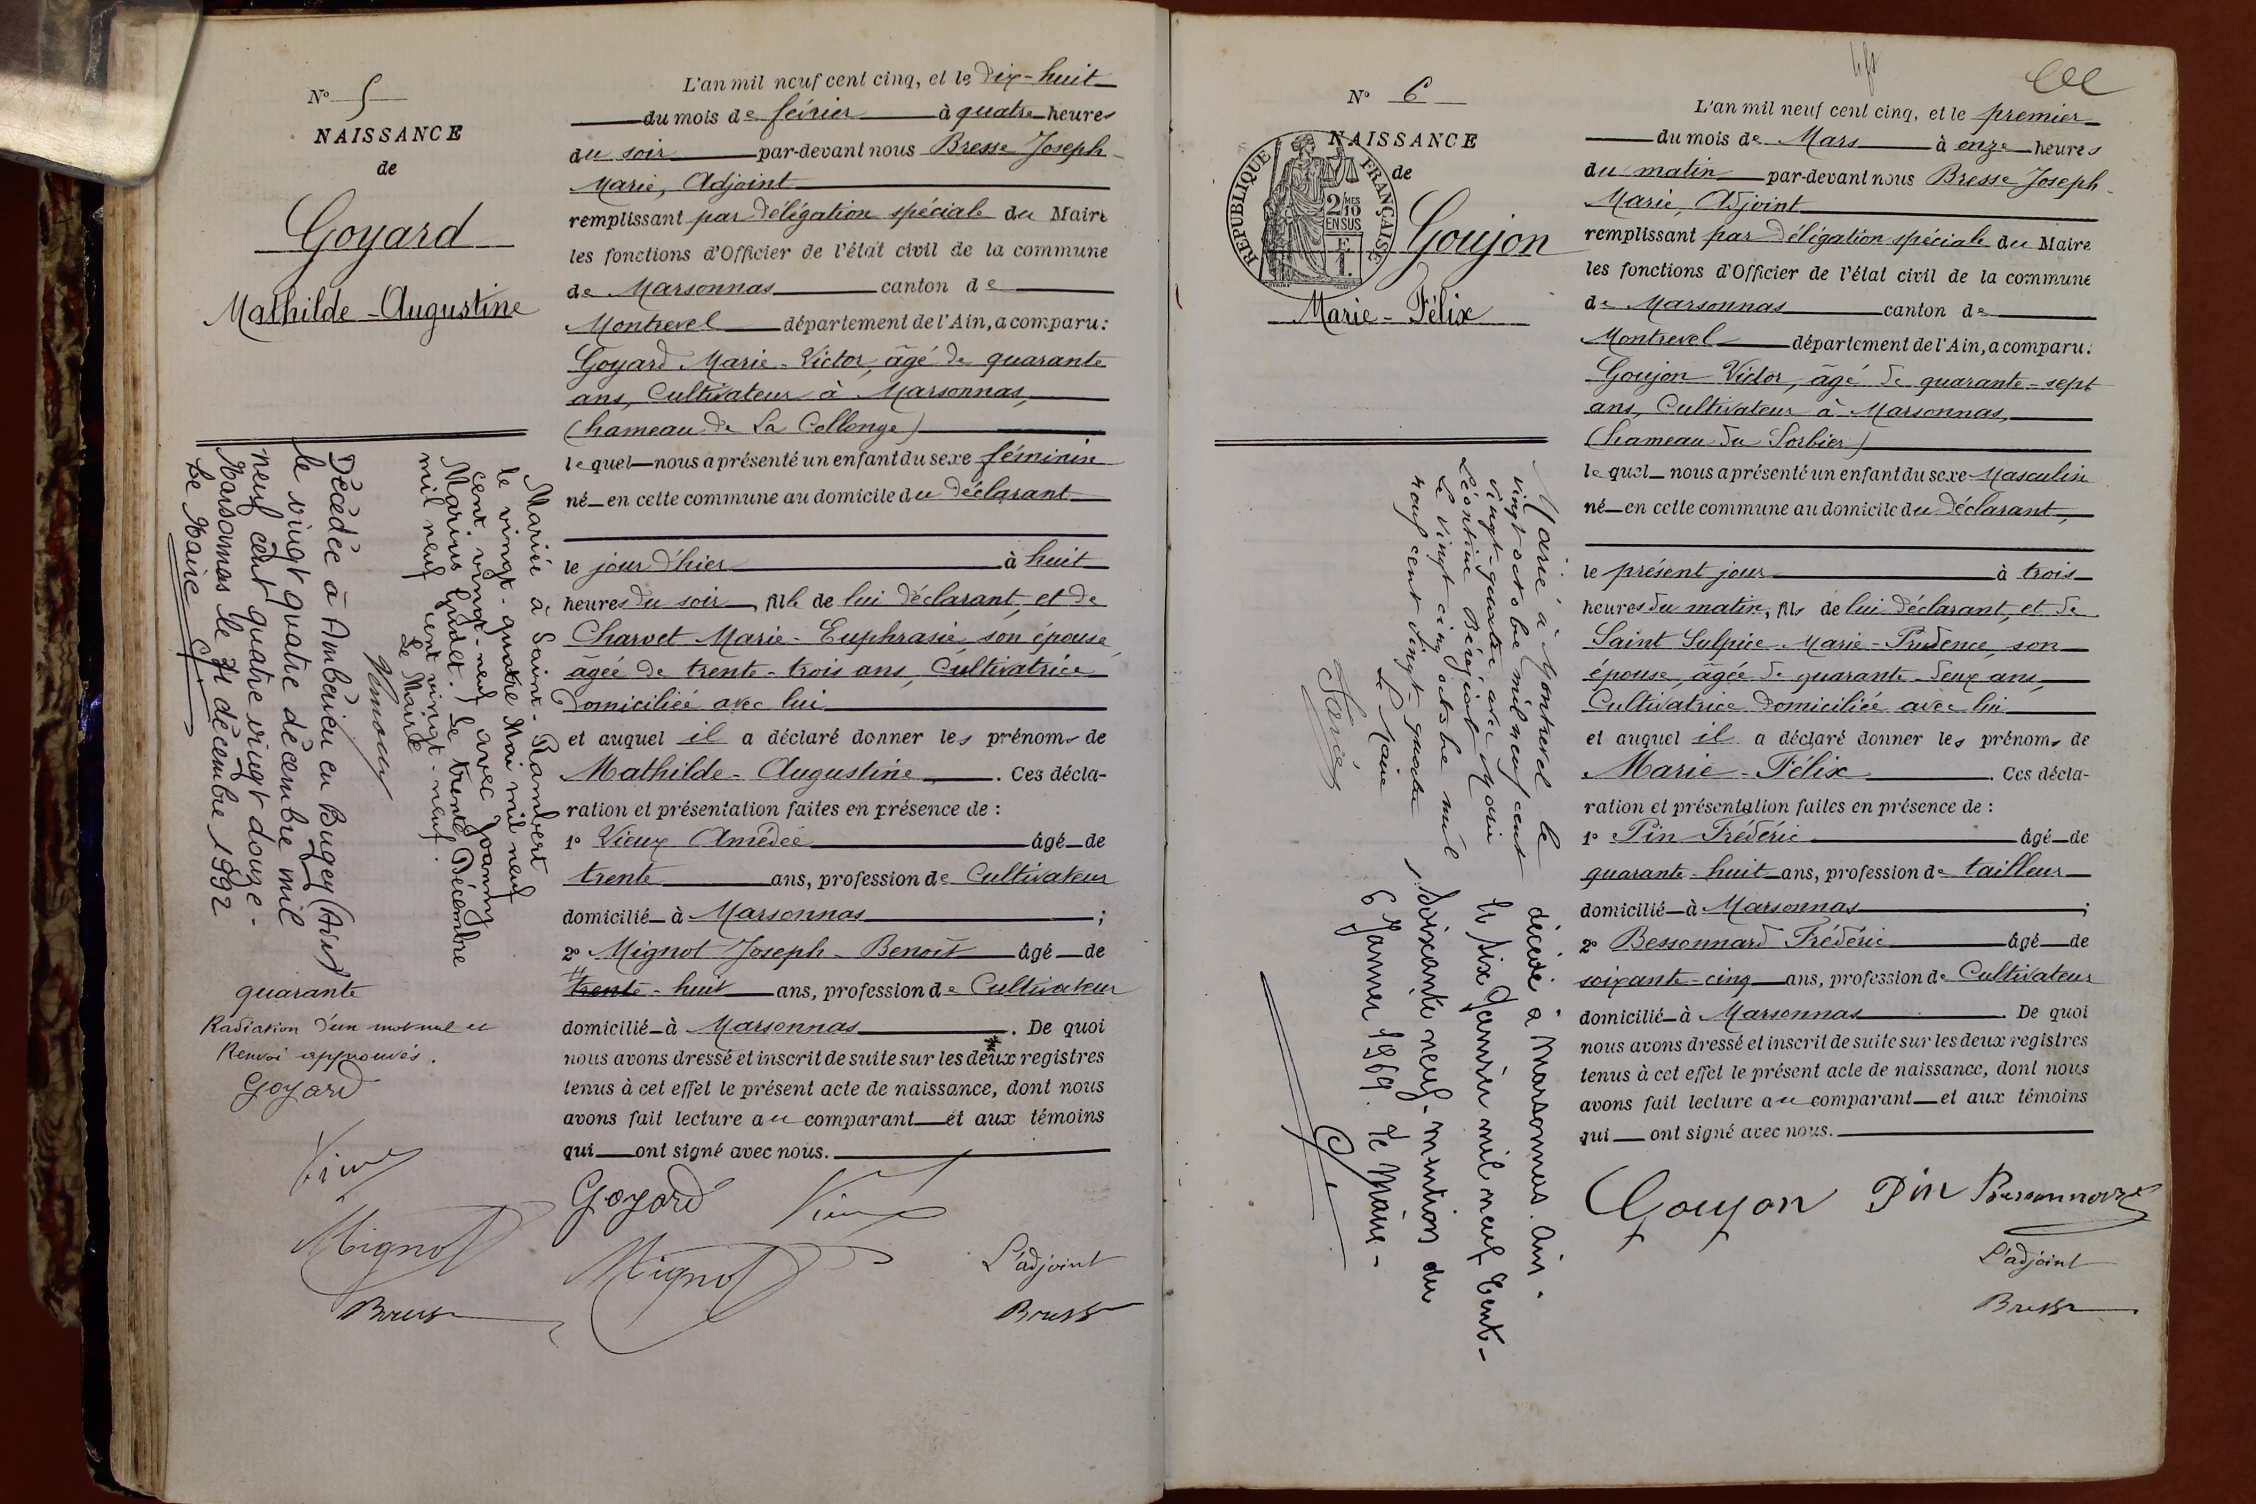 N° 5
NAISSANCE
de
Goyard
Mathilde-Augustine
L'an mil neuf cent cinq, et le dix-huit
du mois de février à quatre heures
du soir par-devant nous Bresse Joseph-
Marie, Adjoint
remplissant par délégation spéciale du Maire
les fonctions d'Officier de l'état civil de la commune
de Marsonnas canton de
Montrevel département de l'Ain, a comparu:
Goyard Marie-Victor, âgé de quarante
ans, Cultivateur à Marsonnas,
(hameau de La Collonge)
lequel nous a présenté un enfant du sexe féminin
né en cette commune au domicile du déclarant
le jour d'hier à huit
heures du soir, fille de lui déclarant, et de
Charvet Marie-Euphrasie son épouse,
âgée de trente-trois ans, Cultivatrice
domiciliée avec lui
et auquel il a déclaré donner les prénoms de
Mathilde-Augustine. Ces décla-
ration et présentation faites en présence de :
1° Vieux Amédée âgé de
trente ans, profession de Cultivateur
domicilié à Marsonnas ;
2° Mignot Joseph-Benoit âgé de
trente-huit ans, profession de Cultivateur
domicilié à Marsonnas. De quoi
nous avons dressé et inscrit de suite sur les deux registres
tenus à cet effet le présent acte de naissance, dont nous
avons fait lecture au comparant et aux témoins
qui ont signé avec nous.
Goyard Vieux
Mignot L'adjoint
Bresse
Marié à Saint-Rambert
le vingt-quatre Mai mil neuf
cent vingt-neuf avec Joanny
Marius Gudet. Le trente Décembre
mil neuf cent vingt-neuf.
Le Maire
Décédée à Ambérieu en Bugey (Ain)
le vingt quatre décembre mil
neuf cent quatre vingt douze-
Marsonnas le 31 décembre 1992
Le Maire
quarante
Radiation d'un mot nul et
Renvoi approuvés.
Goyard
Vieux
Mignot
Bresse
N° 6
NAISSANCE
de
RÉPUBLIQUE FRANÇAISE
2 MES
10
EN SUS
F.
1.
Goujon
Marie-Félix
L'an mil neuf cent cinq, et le premier
du mois de Mars à onze heures
du matin par-devant nous Bresse Joseph-
Marie, Adjoint
remplissant par délégation spéciale du Maire
les fonctions d'Officier de l'état civil de la commune
de Marsonnas canton de
Montrevel département de l'Ain, a comparu:
Goujon Victor, âgé de quarante-sept
ans, Cultivateur à Marsonnas,
(hameau du Sorbier)
lequel nous a présenté un enfant du sexe Masculin
né en cette commune au domicile du déclarant,
le présent jour à trois
heures du matin, fils de lui déclarant, et de
Saint Sulpice Marie-Prudence, son
épouse, âgée de quarante-deux ans,
Cultivatrice domiciliée avec lui
et auquel il a déclaré donner les prénoms de
Marie-Félix. Ces décla-
ration et présentation faites en présence de :
1° Pin Frédéric âgé de
quarante-huit ans, profession de tailleur
domicilié à Marsonnas ;
2° Bessonnard Frédéric âgé de
soixante-cinq ans, profession de Cultivateur
domicilié à Marsonnas. De quoi
nous avons dressé et inscrit de suite sur les deux registres
tenus à cet effet le présent acte de naissance, dont nous
avons fait lecture au comparant et aux témoins
qui ont signé avec nous.
Goujon Pin Bessonnard
L'adjoint
Bresse
Marié à Montrevel le
vingt octobre mil neuf cent
vingt-quatre avec Marie
Léontine Béréziat
Le vingt cinq octobre mil
neuf cent vingt-quatre
Le Maire
décédé à Marsonnas. Ain.
le six Janvier mil neuf Cent-
soixante neuf. mention du
6 Janvier 1969. le Maire-